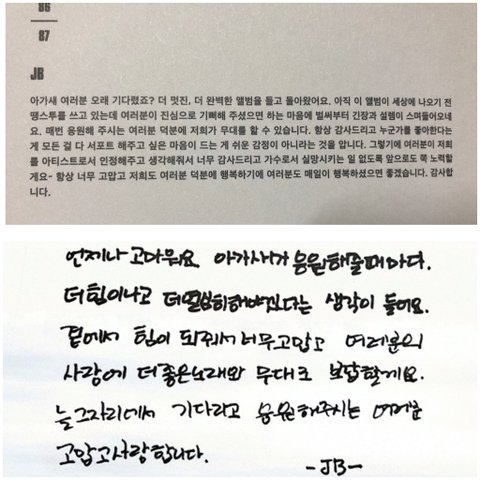 86
87
JB
아가새 여러분 오래 기다렸죠? 더 멋진, 더 완벽한 앨범을 들고 돌아왔어요. 아직 이 앨범이 세상에 나오기 전
땡스투를 쓰고 있는데 여러분이 진심으로 기뻐해 주셨으면 하는 마음에 벌써부터 긴장과 설렘이 스며들어오네
요. 매번 응원해 주시는 여러분 덕분에 저희가 무대를 할 수 있습니다. 항상 감사드리고 누군가를 좋아한다는
게 모든 걸 다 서포트 해주고 싶은 마음이 드는 게 쉬운 감정이 아니라는 것을 압니다. 그렇기에 여러분이 저희
를 아티스트로서 인정해주고 생각해줘서 너무 감사드리고 가수로서 실망시키는 일 없도록 앞으로도 쭉 노력할
게요~ 항상 너무 고맙고 저희도 여러분 덕분에 행복하기에 여러분도 매일이 행복하셨으면 좋겠습니다. 감사합
니다.
언제나 고마워요 아가새가 응원해줄때마다.
더 힘이나고 더 열심히해야겠다는 생각이 들어요.
곁에서 힘이 되줘서 너무고맙고 여러분의
사랑에 더 좋은노래와 무대로 보답할게요.
늘 그자리에서 기다리고 응원해주시는 여러분
고맙고사랑합니다.
-JB-